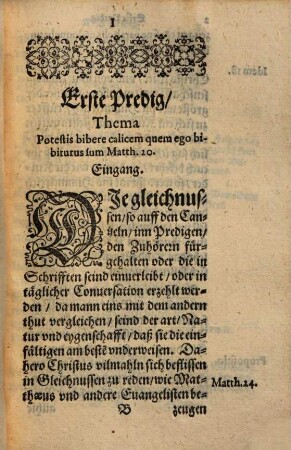 1
Erste Predig/
Thema
Potestis bibere calicem quem ego bi-
biturus sum Matth. 20.
Eingang.
DIe gleichnus-
sen/so auff den Can-
tzeln/inn Predigen/
den Zuhörern für-
gehalten oder die in
Schrifften seind einuerleibt/oder in
täglicher Conuersation erzehlt wer-
den/ da mann eins mit dem andern
thut vergleichen/ seind der art/ Na-
tur vnd eygenschafft/ daß sie die ein-
fältigen am bestē vnderweisen. Da-
hero Christus vilmahln sich beflissen
in Gleichnussen zu reden/wie Mat-
thæus vnd andere Euangelisten be-
Matth.24.
B zeugen